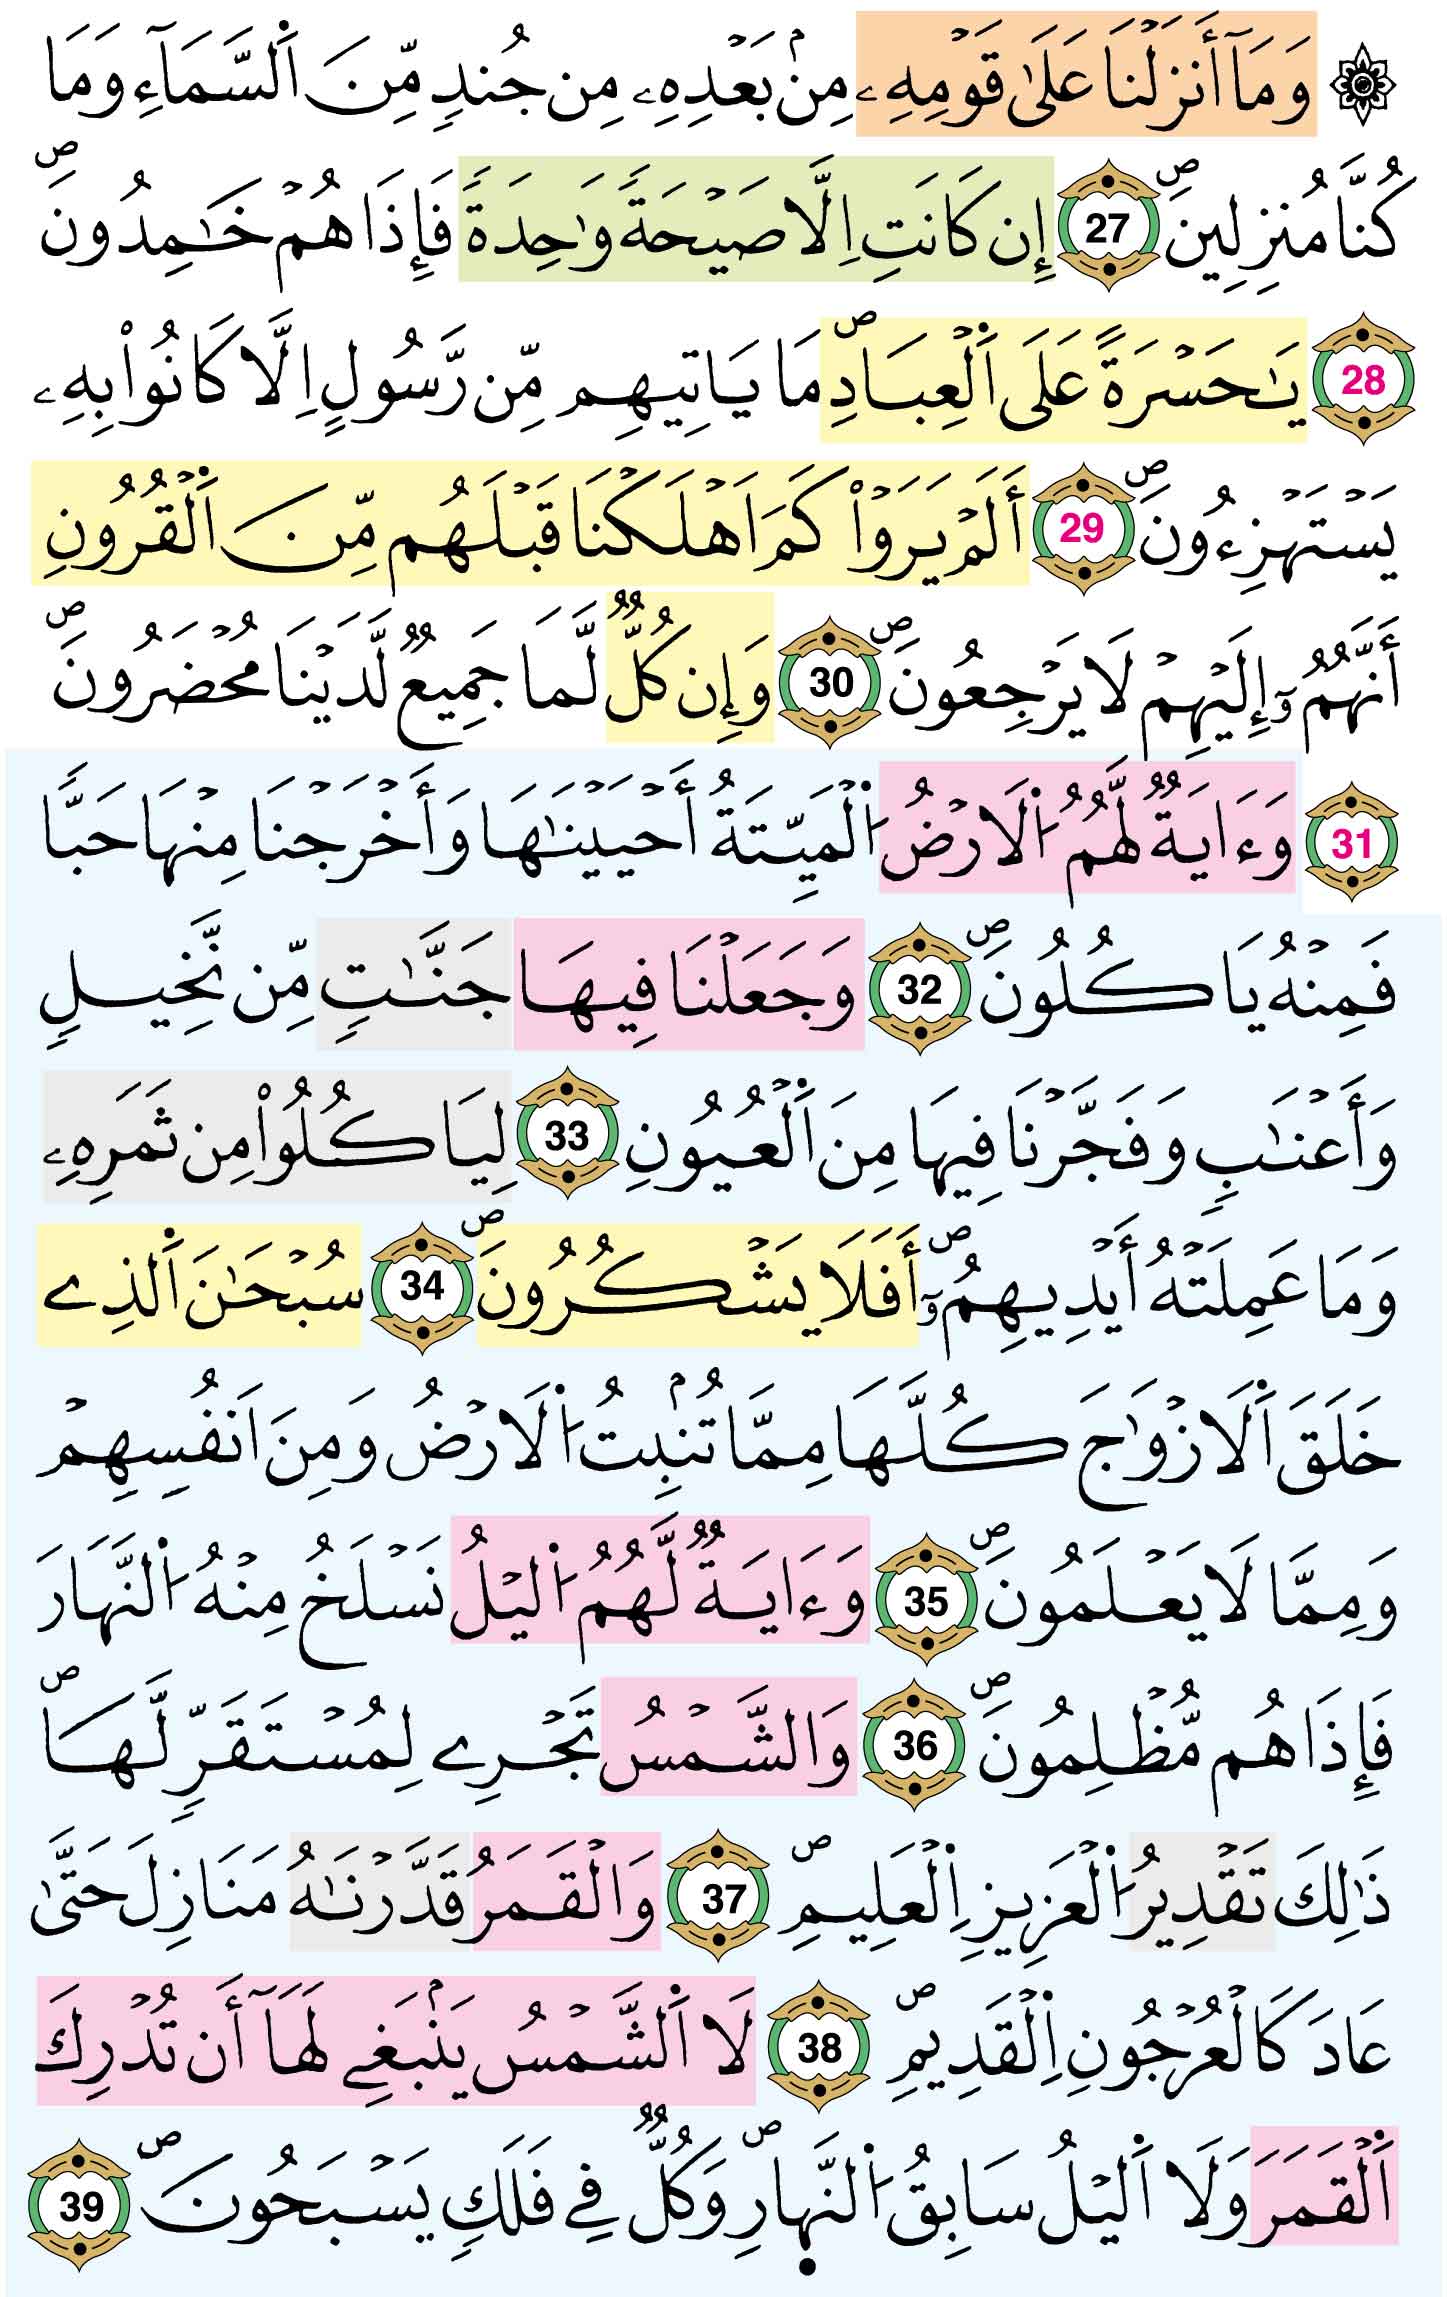 ۞ وَمَآ أَنزَلْنَا عَلَىٰ قَوْمِهِۦ مِنۢ بَعْدِهِۦ مِن جُندٖ مِّنَ اَ۬لسَّمَآءِ وَمَا
كُنَّا مُنزِلِينَۖ 27 إِن كَانَتِ اِلَّا صَيْحَةٗ وَٰحِدَةٗ فَإِذَا هُمْ خَٰمِدُونَۖ
28 يَٰحَسْرَةً عَلَى اَ۬لْعِبَادِۖ مَا يَاتِيهِم مِّن رَّسُولٍ اِلَّا كَانُواْ بِهِۦ
يَسْتَهْزِءُونَۖ 29 أَلَمْ يَرَوْاْ كَمَ اَهْلَكْنَا قَبْلَهُم مِّنَ اَ۬لْقُرُونِ
أَنَّهُمُۥٓ إِلَيْهِمْ لَا يَرْجِعُونَۖ 30 وَإِن كُلّٞ لَّمَا جَمِيعٞ لَّدَيْنَا مُحْضَرُونَۖ
31 وَءَايَةٞ لَّهُمُ اُ۬لَارْضُ اُ۬لْمَيِّتَةُ أَحْيَيْنَٰهَا وَأَخْرَجْنَا مِنْهَا حَبّٗا
فَمِنْهُ يَاكُلُونَۖ 32 وَجَعَلْنَا فِيهَا جَنَّٰتٖ مِّن نَّخِيلٖ
وَأَعْنَٰبٖ وَفَجَّرْنَا فِيهَا مِنَ اَ۬لْعُيُونِ 33 لِيَاكُلُواْ مِن ثَمَرِهِۦ
وَمَا عَمِلَتْهُ أَيْدِيهِمُۥٓۖ أَفَلَا يَشْكُرُونَۖ 34 سُبْحَٰنَ اَ۬لذِے
خَلَقَ اَ۬لَازْوَٰجَ كُلَّهَا مِمَّا تُنۢبِتُ اُ۬لَارْضُ وَمِنَ اَنفُسِهِمْ
وَمِمَّا لَا يَعْلَمُونَۖ 35 وَءَايَةٞ لَّهُمُ اُ۬ليْلُ نَسْلَخُ مِنْهُ اُ۬لنَّهَارَ
فَإِذَا هُم مُّظْلِمُونَۖ 36 وَالشَّمْسُ تَجْرِے لِمُسْتَقَرّٖ لَّهَاۖ
ذَٰلِكَ تَقْدِيرُ اُ۬لْعَزِيزِ اِ۬لْعَلِيمِۖ 37 وَالْقَمَرُ قَدَّرْنَٰهُ مَنَازِلَ حَتَّىٰ
عَادَ كَالْعُرْجُونِ اِ۬لْقَدِيمِۖ 38 لَا اَ۬لشَّمْسُ يَنۢبَغِے لَهَآ أَن تُدْرِكَ
اَ۬لْقَمَرَ وَلَا اَ۬ليْلُ سَابِقُ اُ۬لنَّهَارِۖ وَكُلّٞ فِے فَلَكٖ يَسْبَحُونَۖ 39